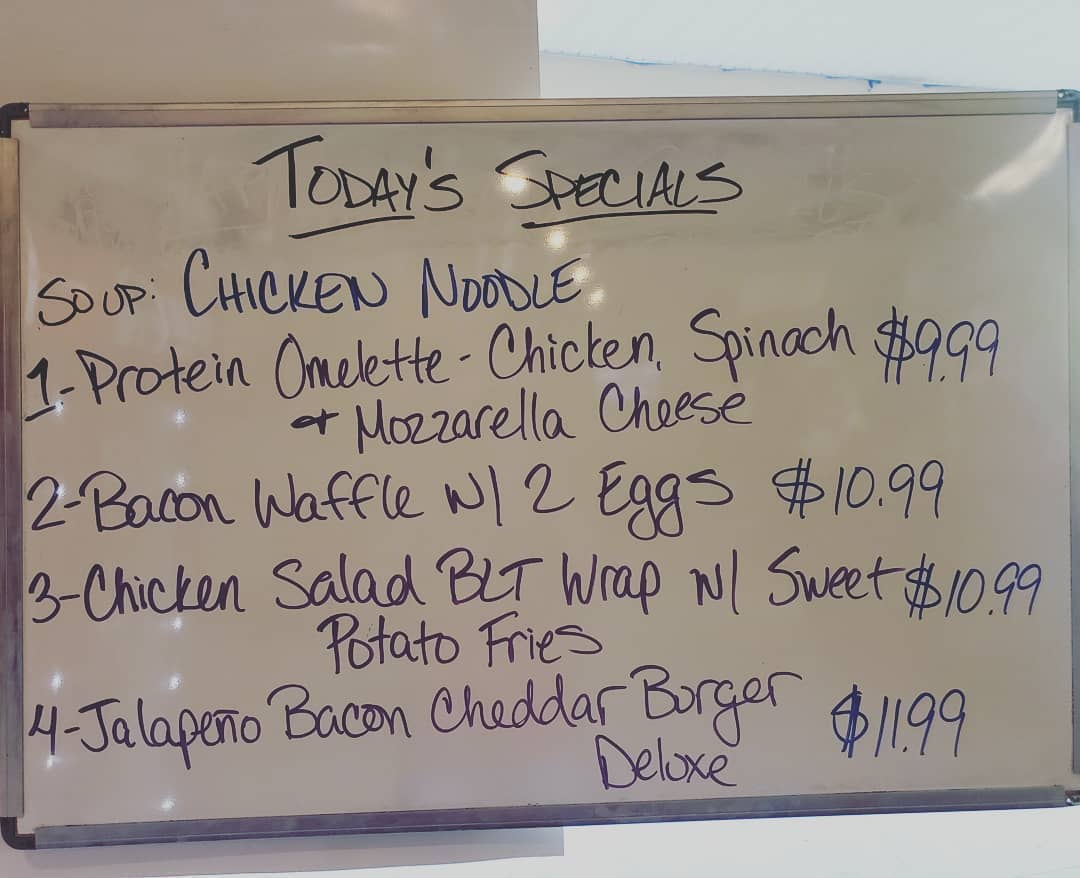 TODAY'S SPECIALS
SOUP: CHICKEN NOODLE
1-Protein Omelette - Chicken, Spinach $9.99
+ Mozzarella Cheese
2-Bacon Waffle W/ 2 Eggs $10.99
3-Chicken Salad BLT Wrap W/ Sweet $10.99
Potato Fries
4-Jalapeño Bacon Cheddar Burger $11.99
Deluxe